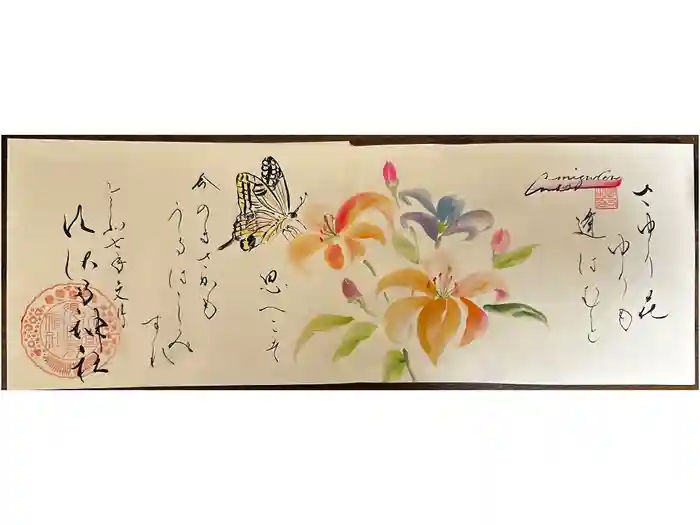 さゆり花
ゆりも
逢はむと
思へこそ
今のまさかも
うるはしみ
すれ
令和七年文月
神社